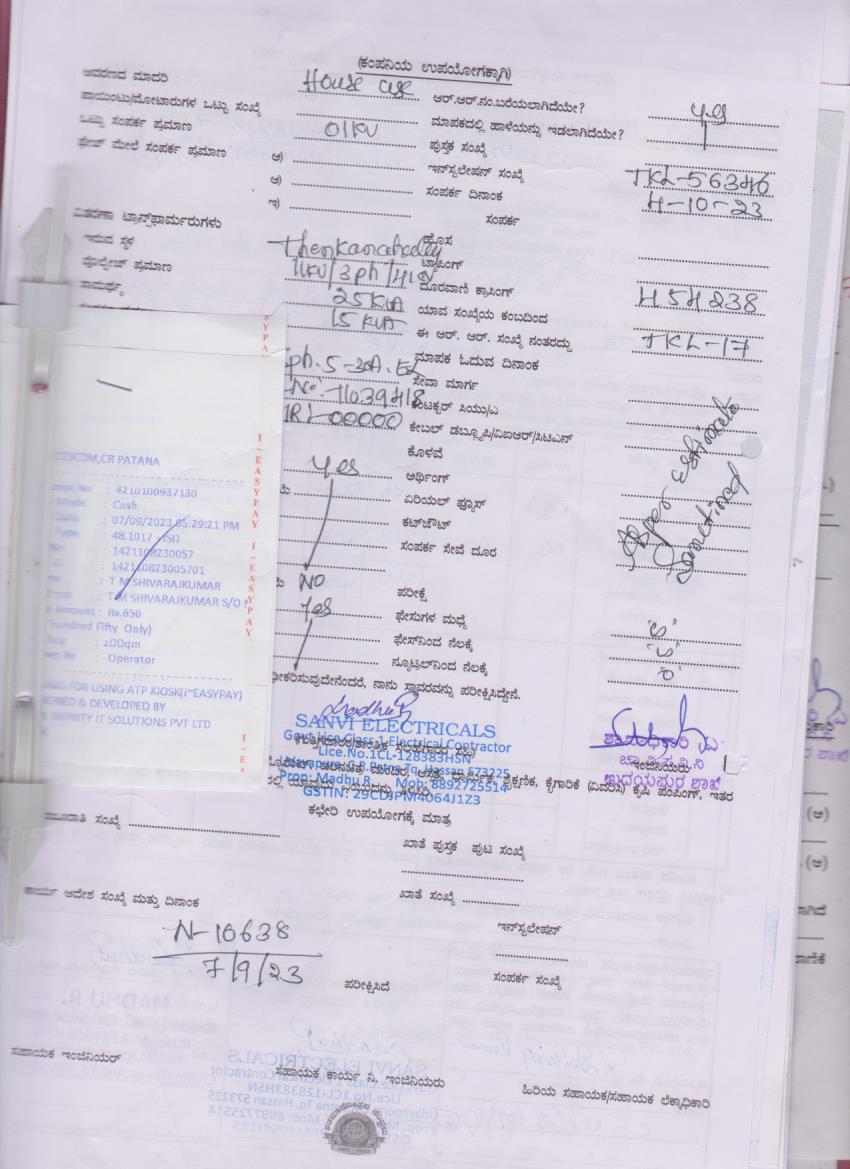 (ಕಂಪನಿಯ ಉಪಯೋಗಕ್ಕಾಗಿ)
ಆವರಣದ ಮಾದರಿ House use ಆರ್.ಆರ್.ನಂ.ಬರೆಯಲಾಗಿದೆಯೇ? yes
ಪಾಯಿಂಟು/ಮೋಟಾರುಗಳ ಒಟ್ಟು ಸಂಖ್ಯೆ ಮಾಪಕದಲ್ಲಿ ಹಾಳೆಯನ್ನು ಇಡಲಾಗಿದೆಯೇ?
ಒಟ್ಟು ಸಂಪರ್ಕ ಪ್ರಮಾಣ 01KW ಪುಸ್ತಕ ಸಂಖ್ಯೆ
ಫೇಸ್ ಮೇಲೆ ಸಂಪರ್ಕ ಪ್ರಮಾಣ ಅ) ಇನ್‌ಸ್ಟಲೇಷನ್ ಸಂಖ್ಯೆ TKL-56346
ಆ) ಸಂಪರ್ಕ ದಿನಾಂಕ 4-10-23
ಇ) ಸಂಪರ್ಕ
ವಿತರಣಾ ಟ್ರಾನ್ಸ್‌ಫಾರ್ಮರುಗಳು
ಇರುವ ಸ್ಥಳ ಹೊಸ
ವೋಲ್ಟೇಜ್ ಪ್ರಮಾಣ 11KV/3ph/ ಟ್ಯಾಪಿಂಗ್
ಸಾಮರ್ಥ್ಯ 25KVA ದೂರವಾಣಿ ಕ್ರಾಸಿಂಗ್ 454238
15KVA ಯಾವ ಸಂಖ್ಯೆಯ ಕಂಬದಿಂದ
ಈ ಆರ್. ಆರ್. ಸಂಖ್ಯೆ ನಂತರದ್ದು TKL-17
ph. 5-30A. ಮಾಪಕ ಓದುವ ದಿನಾಂಕ
No: 11039418 ಸೇವಾ ಮಾರ್ಗ
00000 ಕಂಟಕ್ಟರ್ ಸಿಯು/ಎ
ಕೇಬಲ್ ಡಬ್ಲ್ಯೂಪಿ/ವಿಐಆರ್/ಸಿಟಿಎಸ್
ಕೊಳವೆ
yes ಅರ್ಥಿಂಗ್
ಏರಿಯಲ್ ಫ್ಯೂಸ್
ಕಟ್‌ಔಟ್
ಸಂಪರ್ಕ ಸೇವೆ ದೂರ
As per estimate
Sanctioned
NO ಪರೀಕ್ಷೆ
Yes ಫೇಸುಗಳ ಮಧ್ಯೆ
ಫೇಸ್‌ನಿಂದ ನೆಲಕ್ಕೆ
ನ್ಯೂಟ್ರಲ್‌ನಿಂದ ನೆಲಕ್ಕೆ
ನಾನು ಸ್ಥಾವರವನ್ನು ಪರೀಕ್ಷಿಸಿದ್ದೇನೆ.
CESCOM,CR PATANA
: 4210100937130
: Cash
: 07/09/2023 05:29:21 PM
: 48.1017 - ISD
: 1421108230057
: 14211082300​5701
: T M SHIVARAJKUMAR
: T M SHIVARAJKUMAR S/O
Amount : Rs.650
Fifty Only)
: zDDqm
By : Operator
FOR USING ATP KIOSK(i~EASYPAY)
& DEVELOPED BY
INFINITY IT SOLUTIONS PVT LTD
I~EASYPAY I~EASYPAY
SANVI ELECTRICALS
Govt.Lice.Class-1 Electrical Contractor
Lice.No.1CL-128383HSN
Udayapura, C.R.Patna Tq, Hassan 573225
Prop: Madhu R. Mob: 8892725514
GSTIN: 29CDJPM4064J1Z3
ಇಂಜಿನಿಯರು
ಉದಯಪುರ ಶಾಖೆ
ಶೈಕ್ಷಣಿಕ, ಕೈಗಾರಿಕೆ (ವಿವರಿಸಿ) ಕೃಷಿ ಪಂಪಿಂಗ್, ಇತರ
ಕಛೇರಿ ಉಪಯೋಗಕ್ಕೆ ಮಾತ್ರ
ಸಂಖ್ಯೆ ಖಾತೆ ಪುಸ್ತಕ ಪುಟ ಸಂಖ್ಯೆ
ಕಾರ್ಯ ಆದೇಶ ಸಂಖ್ಯೆ ಮತ್ತು ದಿನಾಂಕ ಖಾತೆ ಸಂಖ್ಯೆ
N-10638 ಇನ್‌ಸ್ಟಲೇಷನ್
7/9/23 ಪರೀಕ್ಷಿಸಿದೆ ಸಂಪರ್ಕ ಸಂಖ್ಯೆ
ಸಹಾಯಕ ಇಂಜಿನಿಯರ್ ಸಹಾಯಕ ಕಾರ್ಯ ನಿ. ಇಂಜಿನಿಯರು ಹಿರಿಯ ಸಹಾಯಕ/ಸಹಾಯಕ ಲೆಕ್ಕಾಧಿಕಾರಿ